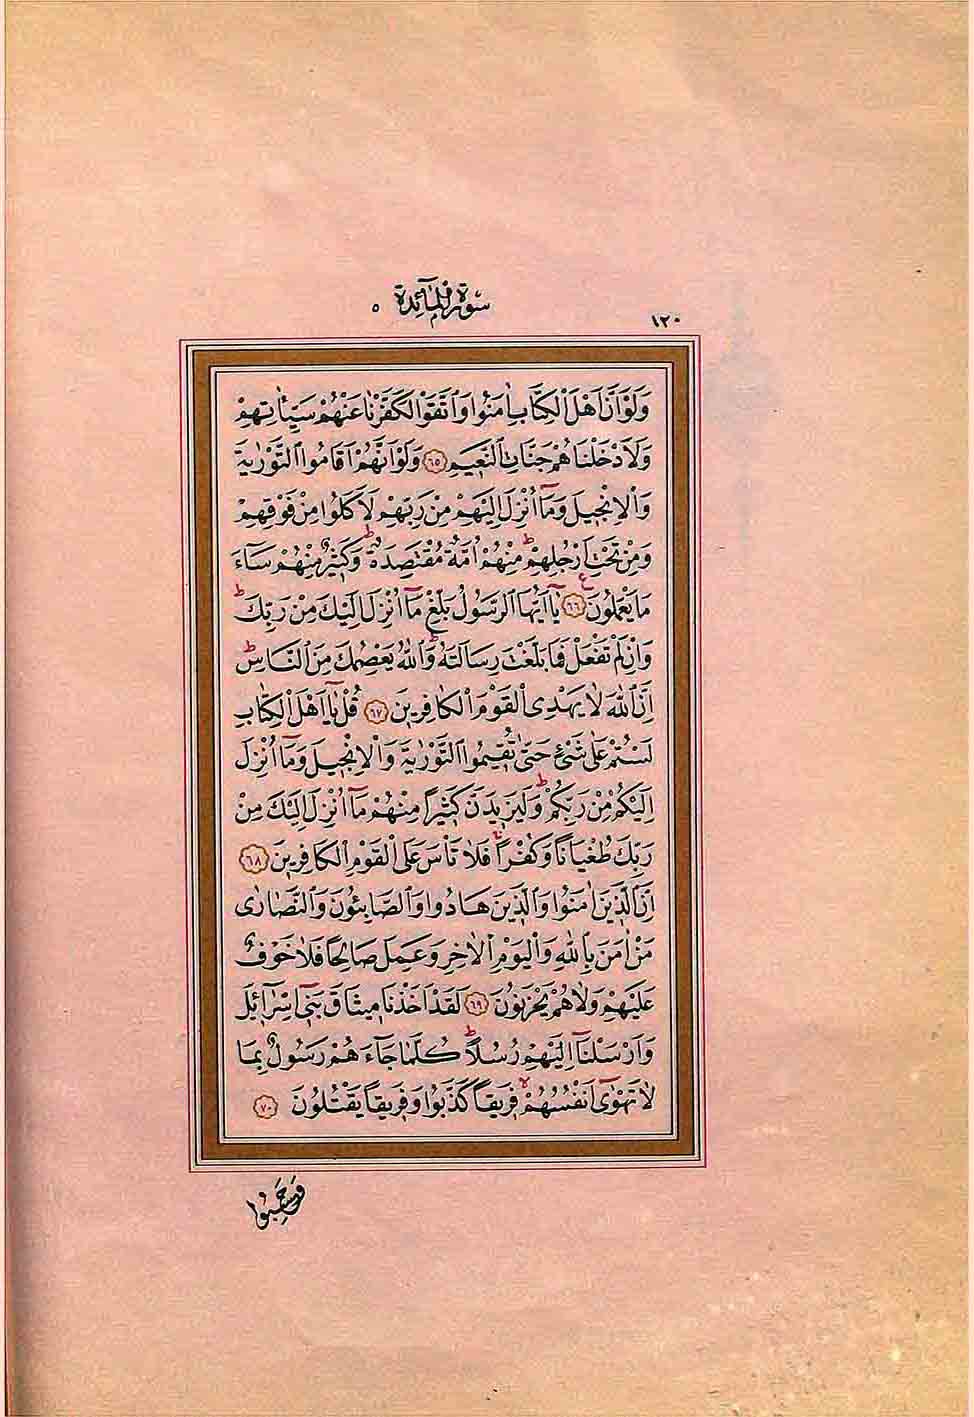 ١٢٠
سُورَةُ الْمَائِدَةِ ٥
وَلَوْ اَنَّ اَهْلَ الْكِتَابِ اٰمَنُوا وَاتَّقَوْا لَكَفَّرْنَا عَنْهُمْ سَيِّاٰتِهِمْ
وَلَاَدْخَلْنَاهُمْ جَنَّاتِ النَّعِيمِ ٦٥ وَلَوْ اَنَّهُمْ اَقَامُوا التَّوْرٰيةَ
وَالْاِنْجِيلَ وَمَٓا اُنْزِلَ اِلَيْهِمْ مِنْ رَبِّهِمْ لَاَكَلُوا مِنْ فَوْقِهِمْ
وَمِنْ تَحْتِ اَرْجُلِهِمْ ط مِنْهُمْ اُمَّةٌ مُقْتَصِدَةٌ ط وَكَثِيرٌ مِنْهُمْ سَٓاءَ
مَا يَعْمَلُونَ ع ٦٦ يَٓا اَيُّهَا الرَّسُولُ بَلِّغْ مَٓا اُنْزِلَ اِلَيْكَ مِنْ رَبِّكَ ط
وَاِنْ لَمْ تَفْعَلْ فَمَا بَلَّغْتَ رِسَالَتَهُ ط وَاللّٰهُ يَعْصِمُكَ مِنَ النَّاسِ ط
اِنَّ اللّٰهَ لَا يَهْدِى الْقَوْمَ الْكَافِرِينَ ٦٧ قُلْ يَٓا اَهْلَ الْكِتَابِ
لَسْتُمْ عَلٰى شَىْءٍ حَتّٰى تُقِيمُوا التَّوْرٰيةَ وَالْاِنْجِيلَ وَمَٓا اُنْزِلَ
اِلَيْكُمْ مِنْ رَبِّكُمْ ط وَلَيَزِيدَنَّ كَثِيرًا مِنْهُمْ مَٓا اُنْزِلَ اِلَيْكَ مِنْ
رَبِّكَ طُغْيَانًا وَكُفْرًا ج فَلَا تَأْسَ عَلَى الْقَوْمِ الْكَافِرِينَ ٦٨
اِنَّ الَّذِينَ اٰمَنُوا وَالَّذِينَ هَادُوا وَالصَّابِئُونَ وَالنَّصَارٰى
مَنْ اٰمَنَ بِاللّٰهِ وَالْيَوْمِ الْاٰخِرِ وَعَمِلَ صَالِحًا فَلَا خَوْفٌ
عَلَيْهِمْ وَلَا هُمْ يَحْزَنُونَ ٦٩ لَقَدْ اَخَذْنَا مِيثَاقَ بَنِٓى اِسْرَٓائِلَ
وَاَرْسَلْنَٓا اِلَيْهِمْ رُسُلًا ط كُلَّمَا جَٓاءَهُمْ رَسُولٌ بِمَا
لَا تَهْوٰٓى اَنْفُسُهُمْ لا فَرِيقًا كَذَّبُوا وَفَرِيقًا يَقْتُلُونَ ٧٠
وَحَسِبُوا